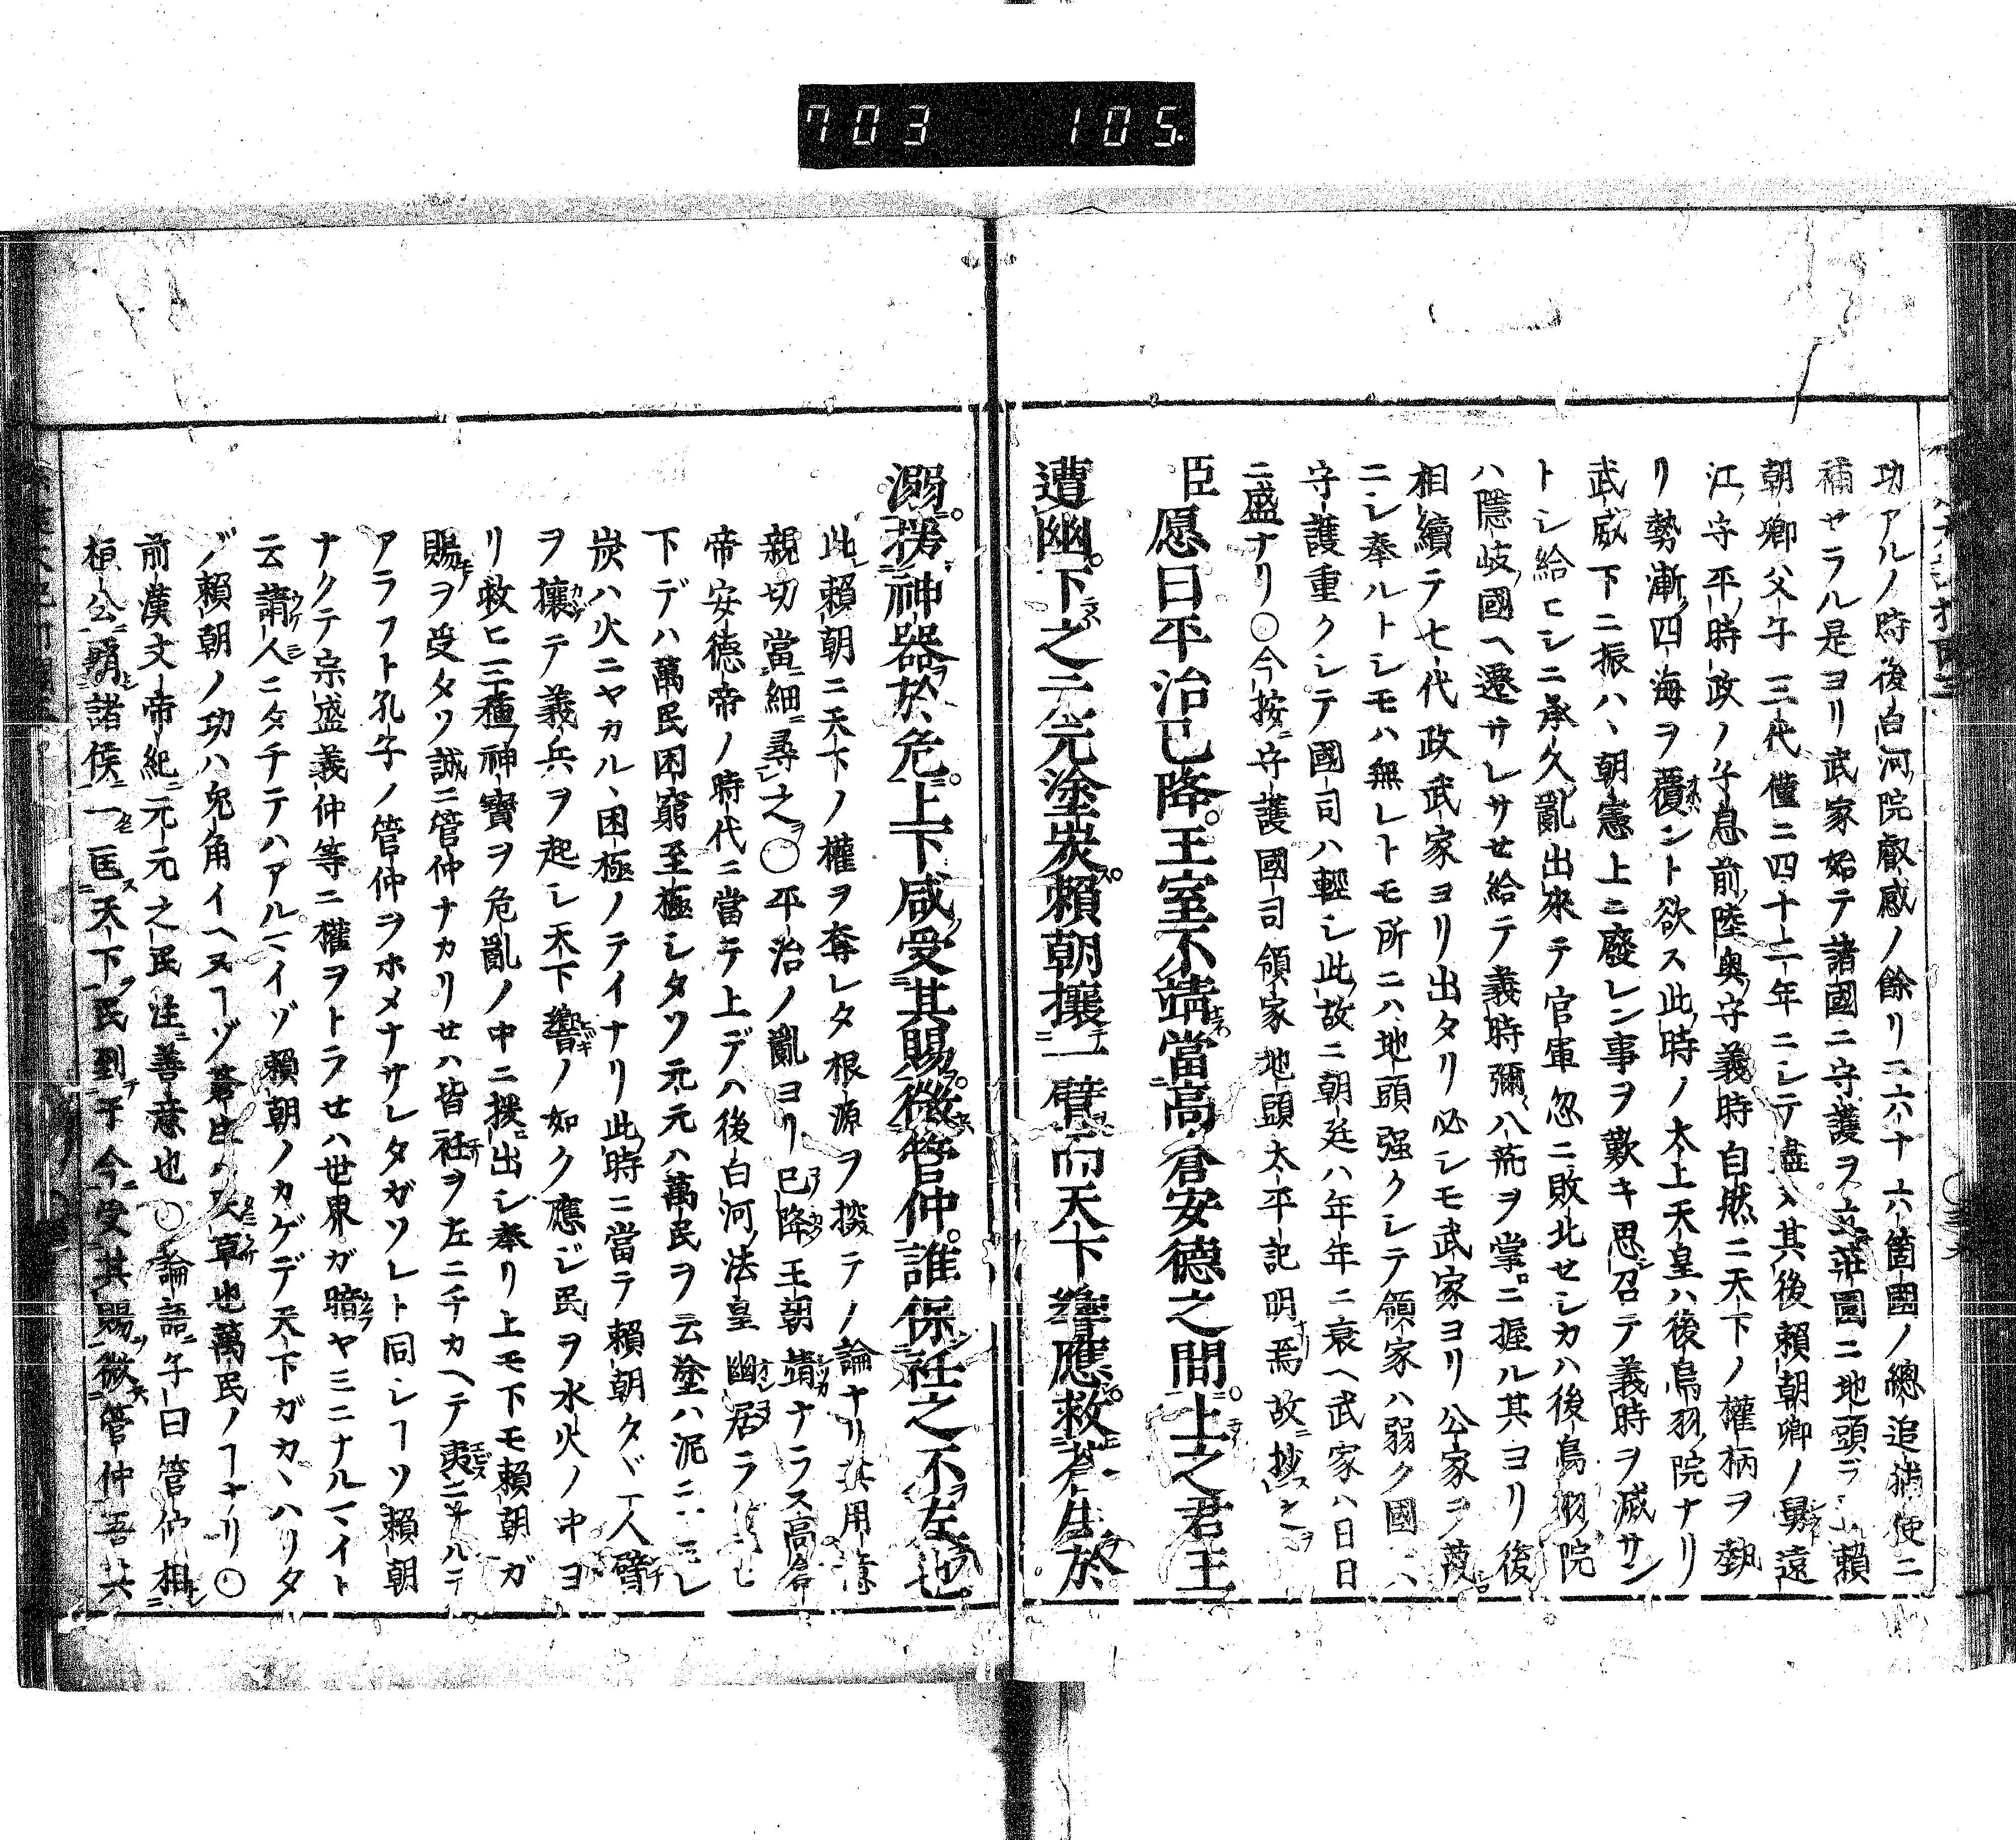 703 105
功アルノ時後白河院叡感ノ餘リニ六十六箇國ノ總追捕使ニ
補セラル是ヨリ武家始テ諸國ニ守護ヲ立莊園ニ地頭ヲ 賴
朝卿父子三代僅ニ四十二年ニシテ盡ヌ其後賴朝卿ノ舅遠
江守平時政ノ子息前陸奥守義時自然ニ天下ノ權柄ヲ執
リ勢漸四海ヲ覆ント欲ス此時ノ太上天皇ハ後鳥羽院ナリ
武威下ニ振ハ、朝憲上ニ廢レン事ヲ歎キ思召テ義時ヲ滅サン
トシ給ヒシニ承久亂出來テ官軍忽ニ敗北セシカハ後鳥羽院
ハ隱岐國ヘ遷サレサセ給テ義時彌八荒ヲ掌ニ握ル其ヨリ後
相續テ七代政武家ヨリ出タリ必シモ武家ヨリ公家ヲ蔑
ニシ奉ルトシモハ無レトモ所ニハ地頭强クシテ領家ハ弱ク國ニハ
守護重クシテ國司ハ輕シ此故ニ朝廷ハ年年ニ衰ヘ武家ハ日日
ニ盛ナリ○今按ニ守護國司領家地頭太平記明焉故抄之
臣愿曰平治已降王室不靖當高倉安德之間上之君王
遭幽下之元元塗炭賴朝攘一臂而天下響應救蒼生於
溺拯神器於危上下咸受其賜微管仲誰保社之不左也
此賴朝ニ天下ノ權ヲ奪レタ根源ヲ 論ナリ其用意
親切當細尋之○平治ノ亂ヨリ已降王朝靖ナラス高倉
帝安德帝ノ時代ニ當テ上デハ後白河法皇幽居
下デハ萬民困窮至極シタソ元元ハ萬民ヲ云塗ハ泥ニ
炭ハ火ニヤカル、困極ノテイナリ此時ニ當テ賴朝タヾ一人臂
ヲ攘テ義兵ヲ起シ天下響ノ如ク應ジ民ヲ水火ノ中ヨ
リ救ヒ三種神寶ヲ危亂ノ中ニ拯出シ奉リ上モ下モ賴朝ガ
賜ヲ受タソ誠ニ管仲ナカリセハ皆社ヲ左ニチカヘテ夷ニナルニテ
アラフト孔子ノ管仲ヲホメナサレタガソレト同シヿソ賴朝
ナクテ宗盛義仲等ニ權ヲトラセハ世界ガ暗ヤミニナルマイト
云請人ニタチテハアルマイゾ賴朝ノカゲデ天下ガカヽハリタ
ゾ賴朝ノ功ハ兔角イヘヌヿゾ蒼生ハ 草也萬民ノヿナリ○
前漢文帝紀元元之民注善意也○論語子曰管仲相
桓公霸諸侯一匡天下民到于今受其賜微管仲吾其